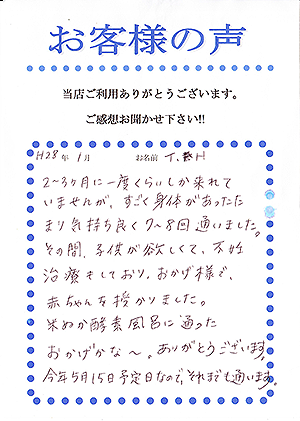 お客様の声
当店ご利用ありがとうございます。
ご感想お聞かせ下さい!!
H28年 1月 お名前 T.H
2〜3ヶ月に一度くらいしか来れて
いませんが、すごく身体があったた
まり気持ち良く7〜8回通いました。
その間、子供が欲しくて、不妊
治療をしており、おかげ様で、
赤ちゃんを授かりました。
米ぬか酵素風呂に通った
おかげかな〜。ありがとうございます。
今年5月15日予定日なので、それまでも通います。